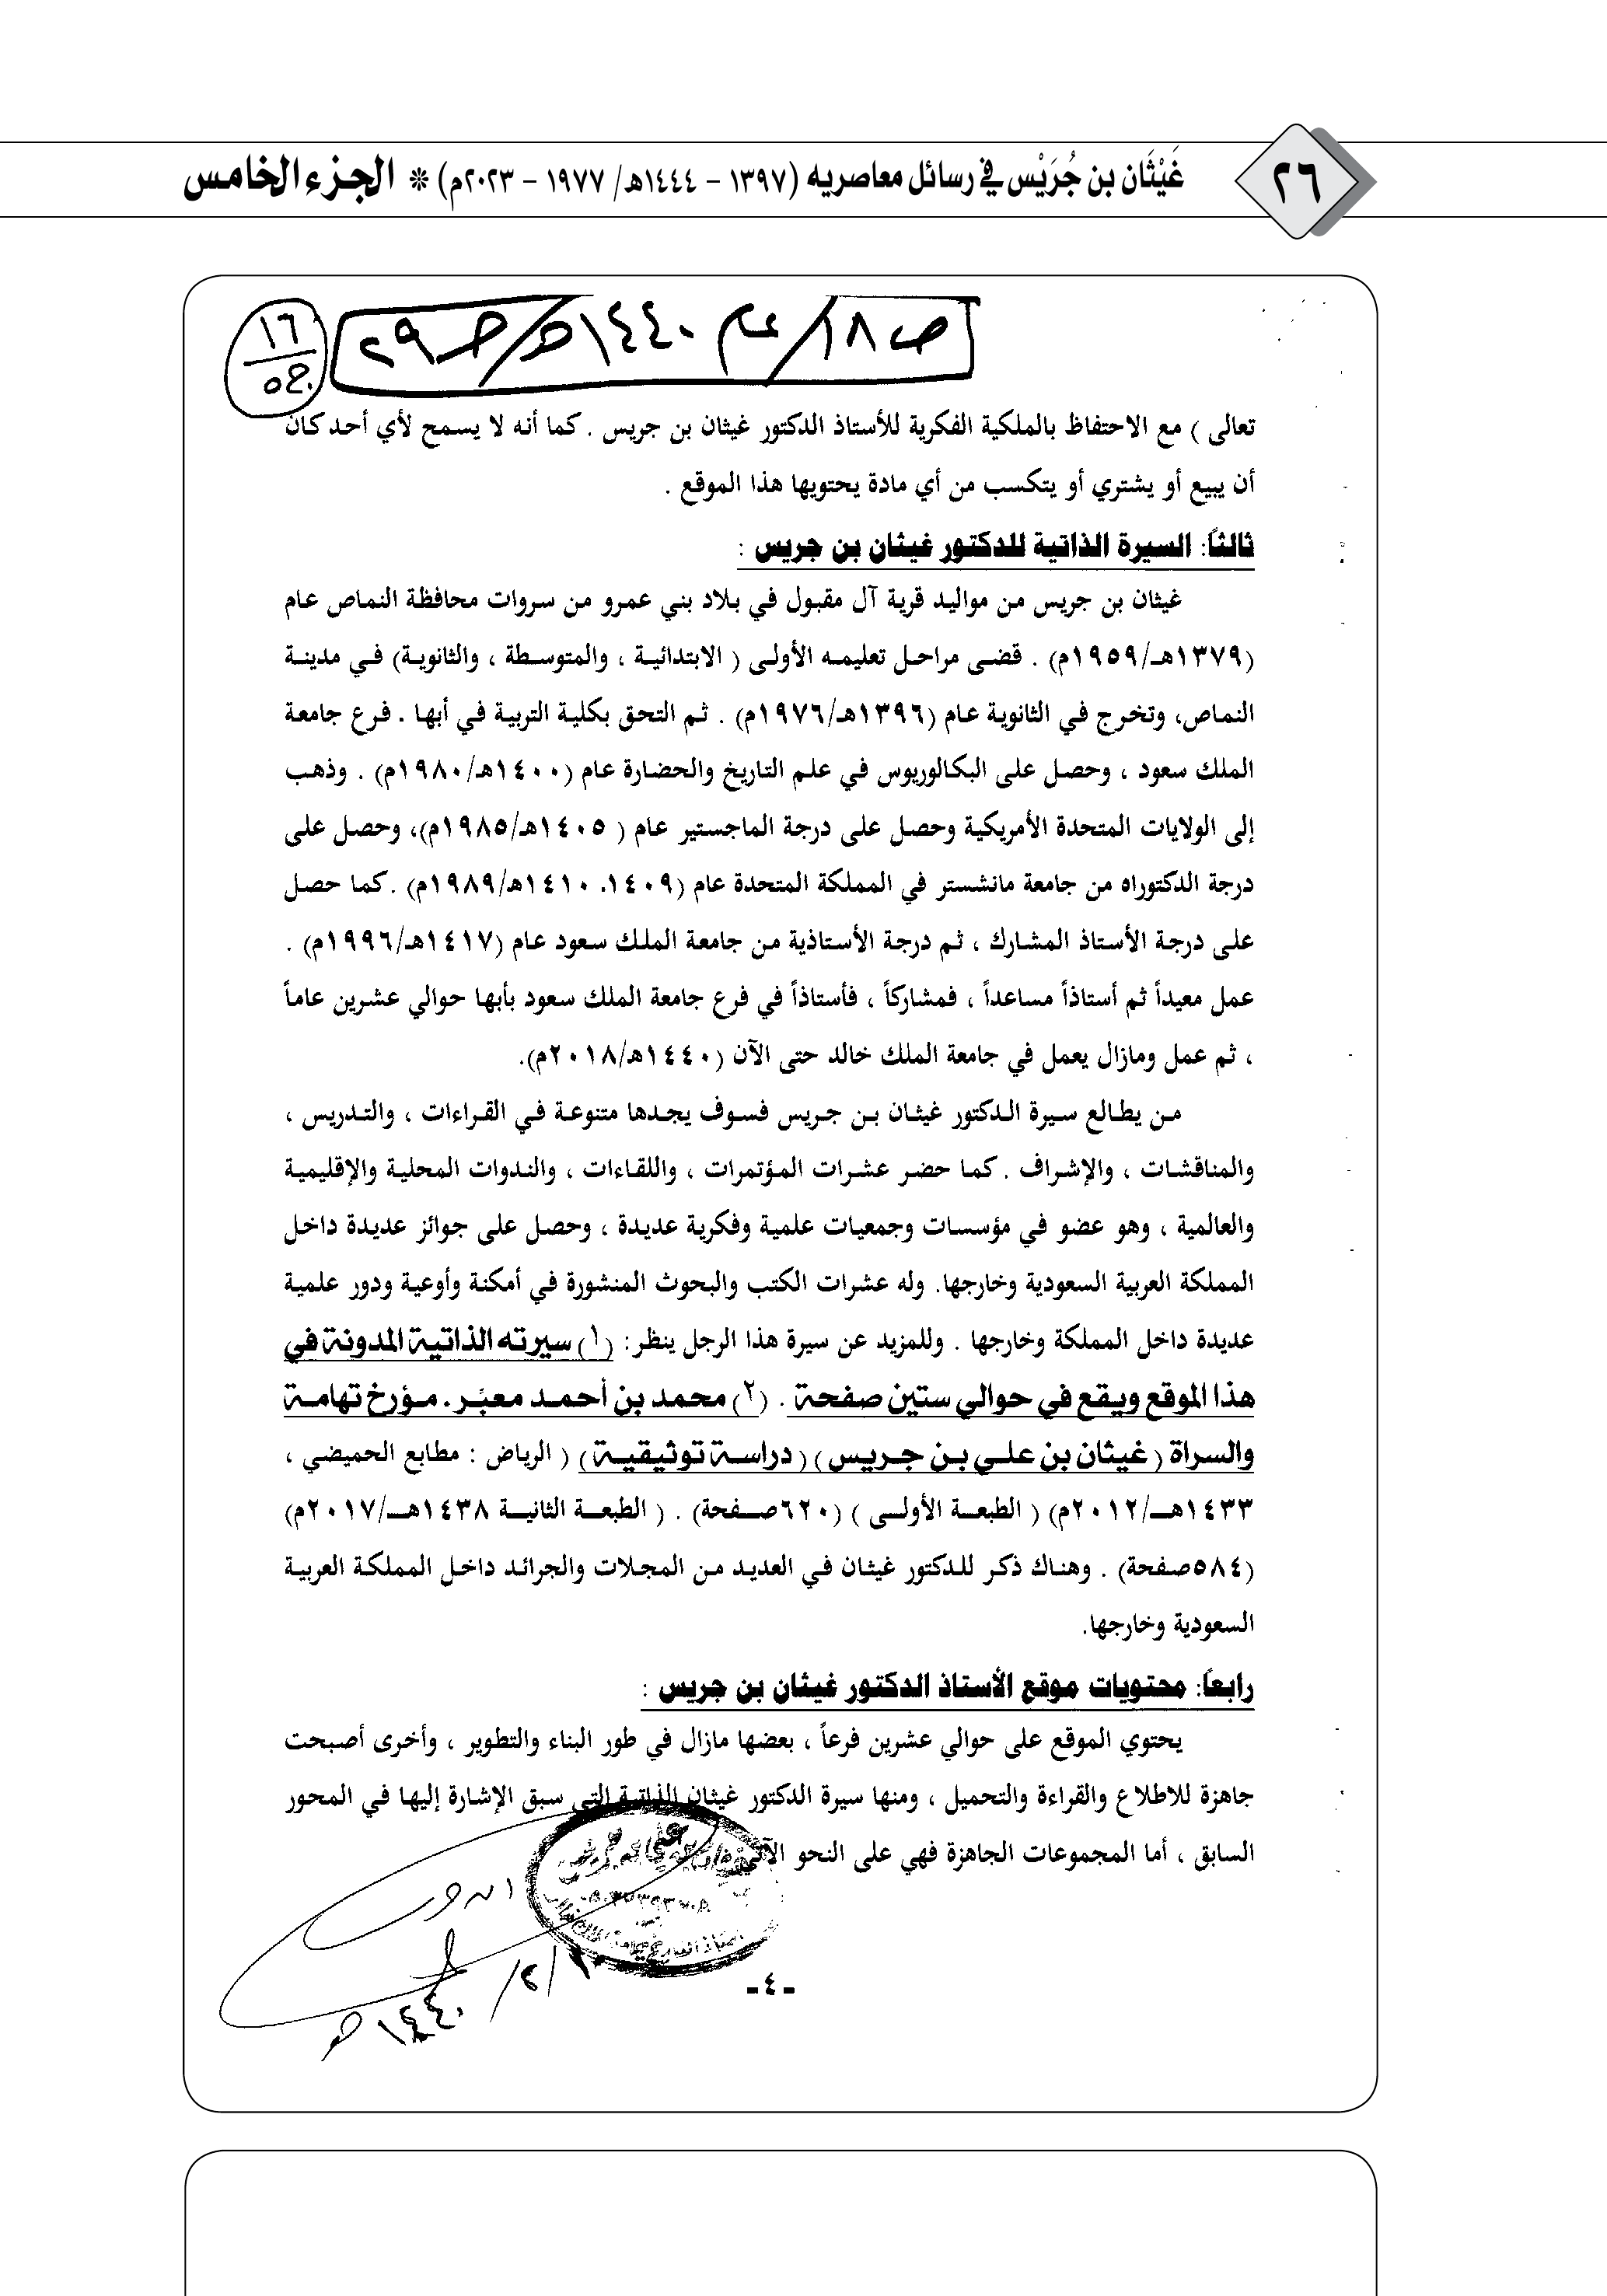 ٢٦
غَيْثَان بن جُرَيْس في رسائل معاصريه (١٣٩٧ - ١٤٤٤هـ/ ١٩٧٧ - ٢٠٢٣م) * الجزء الخامس
ص ١٨/عام ١٤٤٠هـ/جـ ٢٩
١٦
تعالى ) مع الاحتفاظ بالملكية الفكرية للأستاذ الدكتور غيثان بن جريس . كما أنه لا يسمح لأي أحد كان
أن يبيع أو يشتري أو يتكسب من أي مادة يحتويها هذا الموقع .
ثالثاً: السيرة الذاتية للدكتور غيثان بن جريس :
غيثان بن جريس من مواليد قرية آل مقبول في بلاد بني عمرو من سروات محافظة النماص عام
(١٣٧٩هـ/١٩٥٩م) . قضى مراحل تعليمه الأولى ( الابتدائية ، والمتوسطة ، والثانوية) في مدينة
النماص، وتخرج في الثانوية عام (١٣٩٦هـ/١٩٧٦م) . ثم التحق بكلية التربية في أبها . فرع جامعة
الملك سعود ، وحصل على البكالوريوس في علم التاريخ والحضارة عام (١٤٠٠هـ/١٩٨٠م) . وذهب
إلى الولايات المتحدة الأمريكية وحصل على درجة الماجستير عام ( ١٤٠٥هـ/١٩٨٥م)، وحصل على
درجة الدكتوراه من جامعة مانشستر في المملكة المتحدة عام (١٤٠٩. ١٤١٠هـ/١٩٨٩م) .كما حصل
على درجة الأستاذ المشارك ، ثم درجة الأستاذية من جامعة الملك سعود عام (١٤١٧هـ/١٩٩٦م) .
عمل معيداً ثم أستاذاً مساعداً ، فمشاركاً ، فأستاذاً في فرع جامعة الملك سعود بأبها حوالي عشرين عاماً
، ثم عمل ومازال يعمل في جامعة الملك خالد حتى الآن (١٤٤٠هـ/٢٠١٨م).
من يطالع سيرة الدكتور غيثان بن جريس فسوف يجدها متنوعة في القراءات ، والتدريس ،
والمناقشات ، والإشراف . كما حضر عشرات المؤتمرات ، واللقاءات ، والندوات المحلية والإقليمية
والعالمية ، وهو عضو في مؤسسات وجمعيات علمية وفكرية عديدة ، وحصل على جوائز عديدة داخل
المملكة العربية السعودية وخارجها. وله عشرات الكتب والبحوث المنشورة في أمكنة وأوعية ودور علمية
عديدة داخل المملكة وخارجها . وللمزيد عن سيرة هذا الرجل ينظر: (١) سيرته الذاتية المدونة في
هذا الموقع ويقع في حوالي ستين صفحة . (٢) محمد بن أحمد معبّر . مؤرخ تهامة
والسراة ( غيثان بن علي بن جريس ) ( دراسة توثيقية ) ( الرياض : مطابع الحميضي ،
١٤٣٣هـ/٢٠١٢م) ( الطبعة الأولى ) (٦٢٠صفحة) . ( الطبعة الثانية ١٤٣٨هـ/٢٠١٧م)
(٥٨٤صفحة) . وهناك ذكر للدكتور غيثان في العديد من المجلات والجرائد داخل المملكة العربية
السعودية وخارجها.
رابعاً: محتويات موقع الأستاذ الدكتور غيثان بن جريس :
يحتوي الموقع على حوالي عشرين فرعاً ، بعضها مازال في طور البناء والتطوير ، وأخرى أصبحت
جاهزة للاطلاع والقراءة والتحميل ، ومنها سيرة الدكتور غيثان الذاتية التي سبق الإشارة إليها في المحور
السابق ، أما المجموعات الجاهزة فهي على النحو الآتي
١٠/٢/
١٤٤٠هـ
-٤-